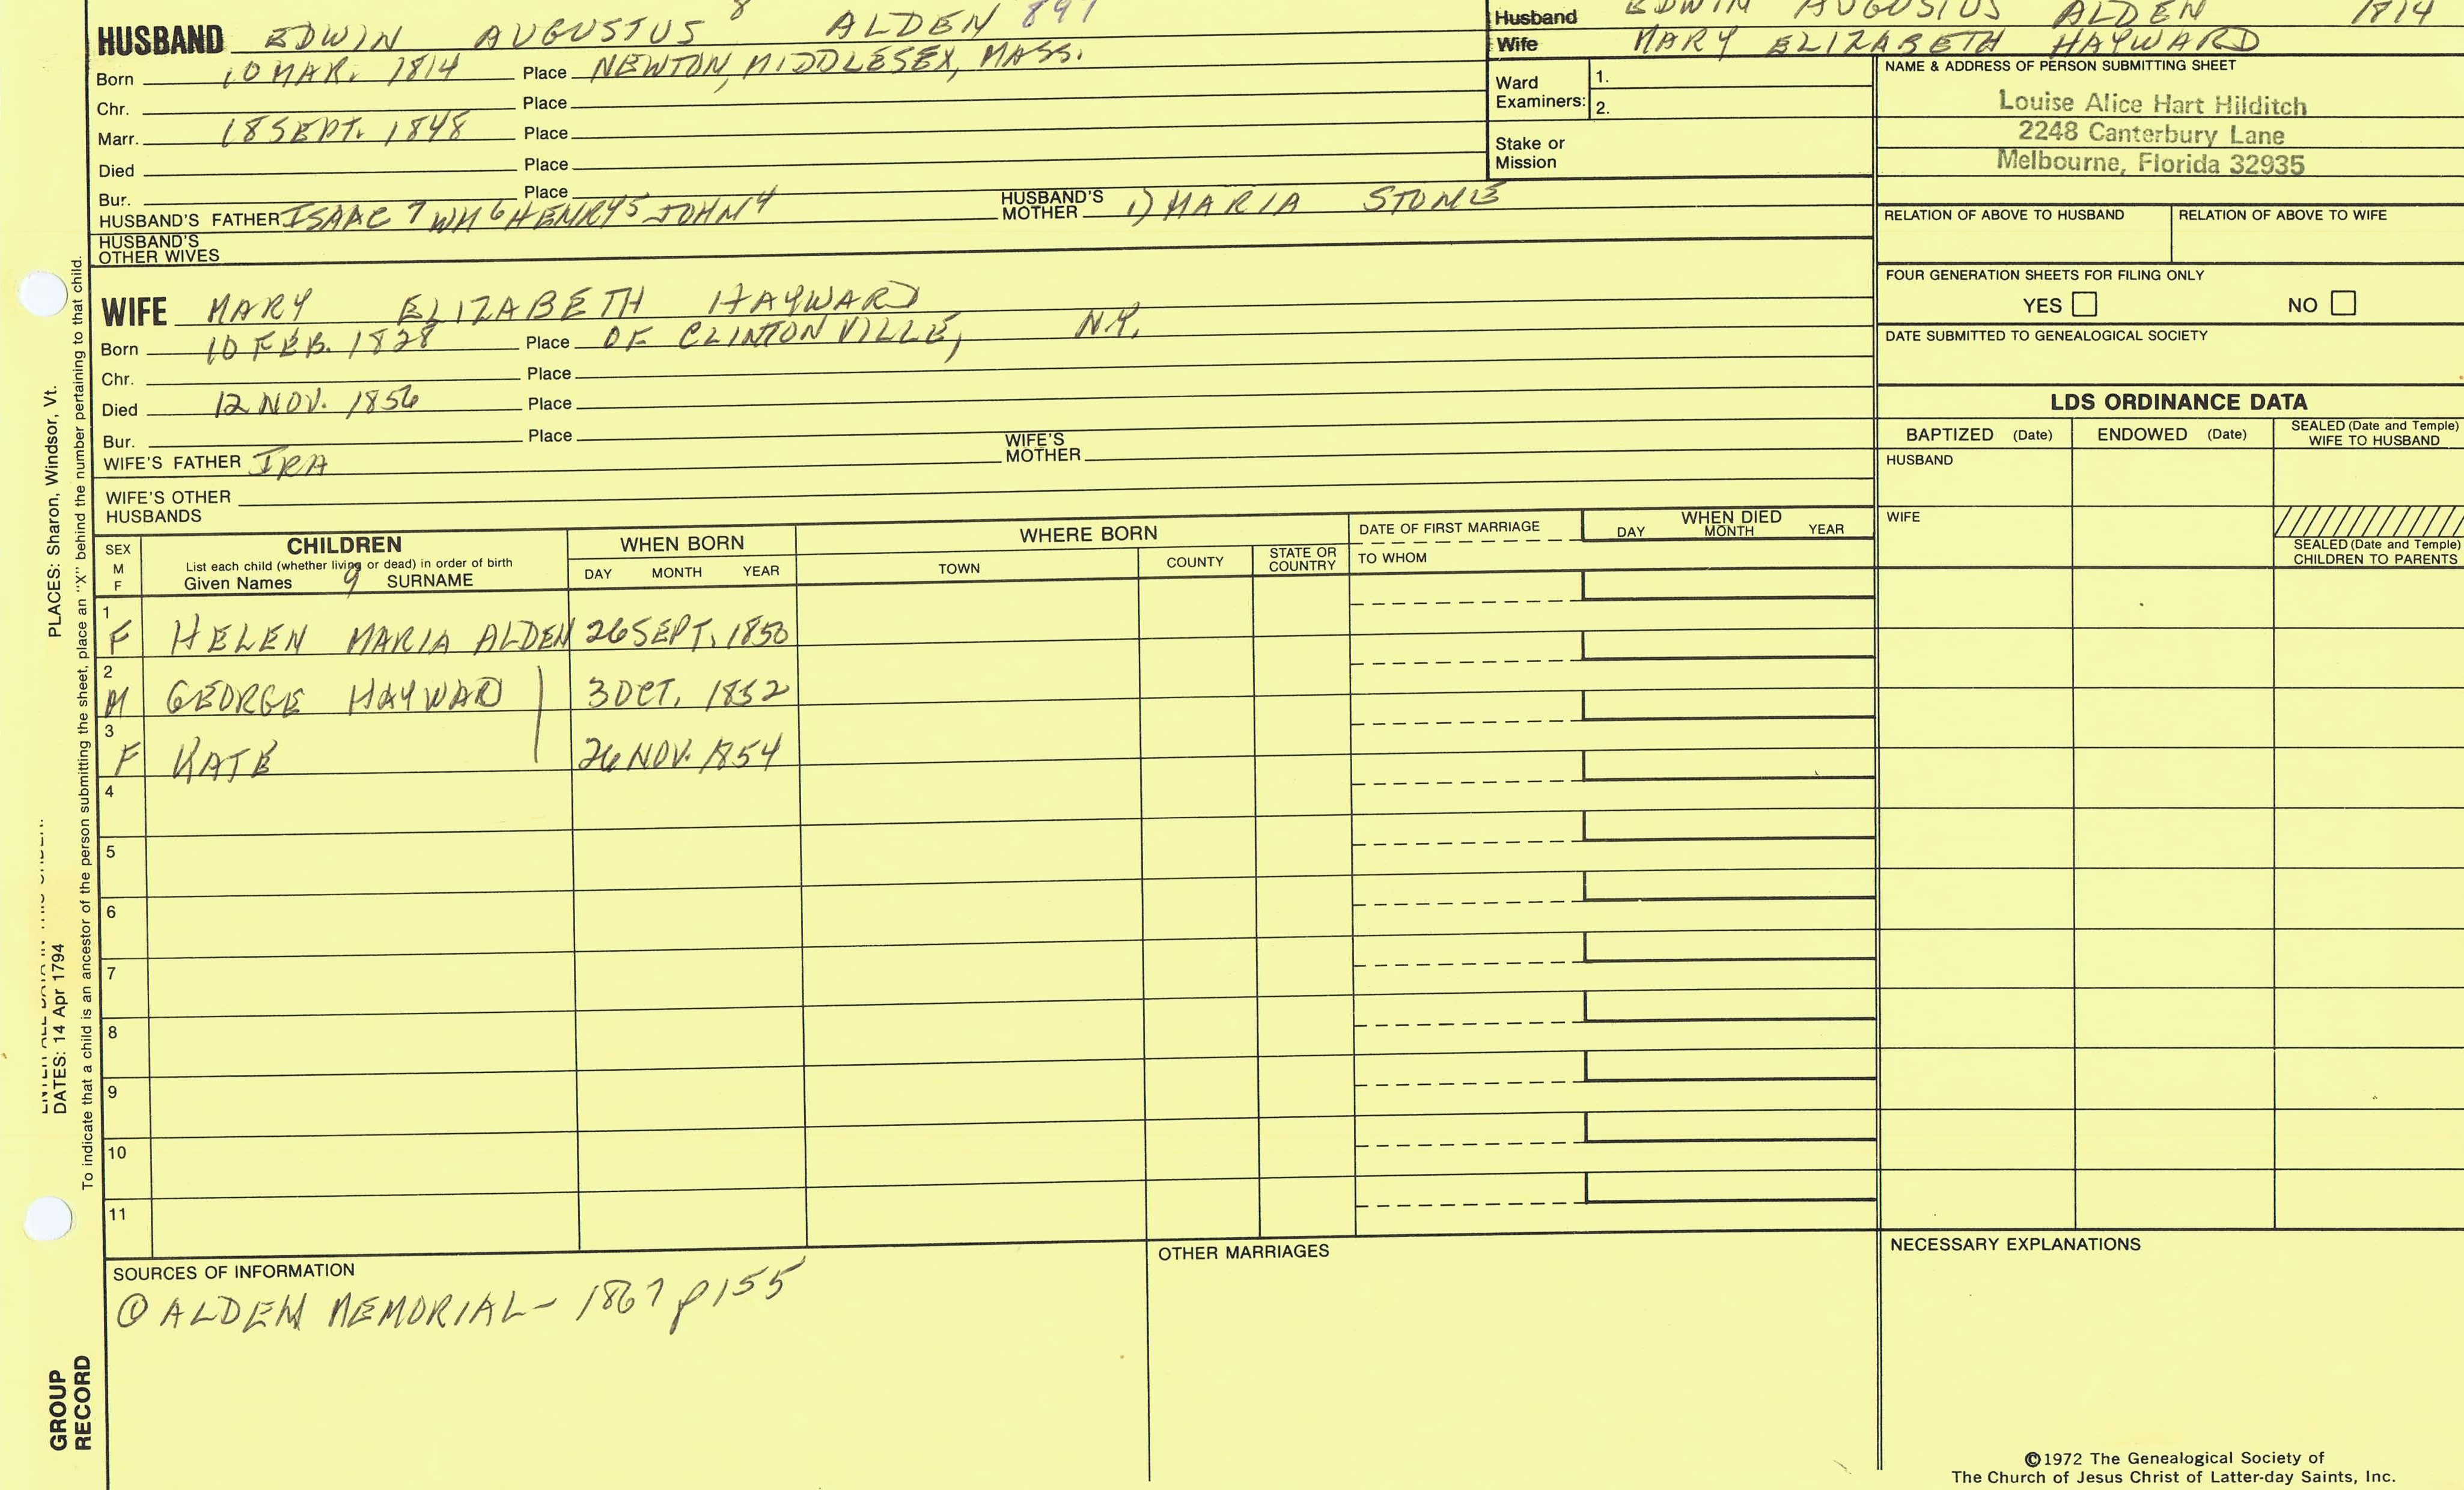 HUSBAND EDWIN AUGUSTUS 8 ALDEN 897
Born 10 MAR. 1814 Place NEWTON, MIDDLESEX, MASS.
Chr. Place
Marr. 18 SEPT. 1848 Place
Died Place
Bur. Place
HUSBAND'S FATHER ISAAC 7 WM 6 HENRY 5 JOHN 4 HUSBAND'S MOTHER 1) MARIA STONE
HUSBAND'S OTHER WIVES
Husband EDWIN AUGUSTUS ALDEN 1814
Wife MARY ELIZABETH HAYWARD
Ward Examiners: 1.
2.
Stake or Mission
NAME & ADDRESS OF PERSON SUBMITTING SHEET
Louise Alice Hart Hilditch
2248 Canterbury Lane
Melbourne, Florida 32935
RELATION OF ABOVE TO HUSBAND RELATION OF ABOVE TO WIFE
FOUR GENERATION SHEETS FOR FILING ONLY
YES NO
DATE SUBMITTED TO GENEALOGICAL SOCIETY
WIFE MARY ELIZABETH HAYWARD
Born 10 FEB. 1828 Place OF CLINTONVILLE, N.Y.
Chr. Place
Died 12 NOV. 1856 Place
Bur. Place
WIFE'S FATHER IRA WIFE'S MOTHER
WIFE'S OTHER HUSBANDS
LDS ORDINANCE DATA
BAPTIZED (Date) ENDOWED (Date) SEALED (Date and Temple) WIFE TO HUSBAND
HUSBAND
WIFE
SEALED (Date and Temple) CHILDREN TO PARENTS
SEX M F
CHILDREN
List each child (whether living or dead) in order of birth
Given Names 9 SURNAME
WHEN BORN
DAY MONTH YEAR
WHERE BORN
TOWN COUNTY STATE OR COUNTRY
DATE OF FIRST MARRIAGE
TO WHOM
WHEN DIED
DAY MONTH YEAR
1 F HELEN MARIA ALDEN 26 SEPT. 1850
2 M GEORGE HAYWAD 3 OCT. 1852
3 F KATE 26 NOV. 1854
4
5
6
7
8
9
10
11
SOURCES OF INFORMATION
① ALDEN MEMORIAL - 1867 p155
OTHER MARRIAGES
NECESSARY EXPLANATIONS
©1972 The Genealogical Society of
The Church of Jesus Christ of Latter-day Saints, Inc.
PLACES: Sharon, Windsor, Vt.
DATES: 14 Apr 1794
To indicate that a child is an ancestor of the person submitting the sheet, place an "X" behind the number pertaining to that child.
GROUP
RECORD